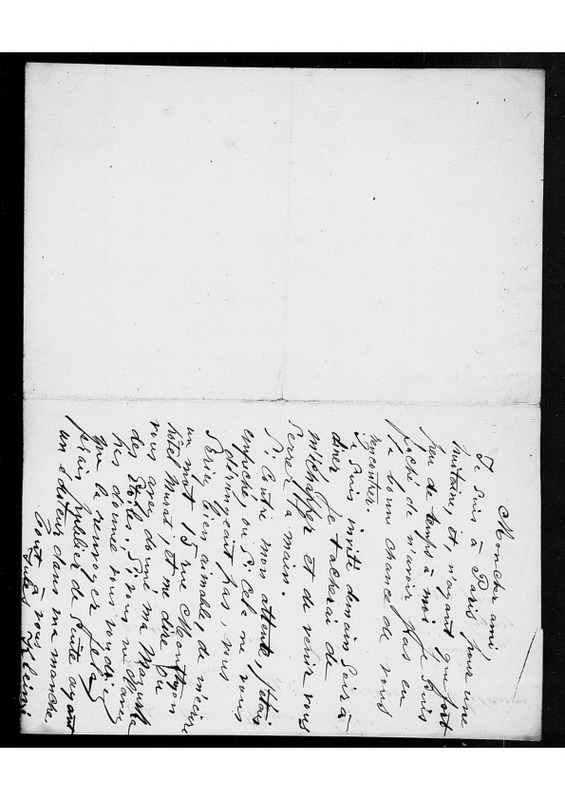 Mon cher ami,
Je suis à Paris pour une
huitaine, et, n'ayant que fort
peu de temps à moi je suis
faché de n'avoir pas eu
la bonne chance de vous
rencontrer.
Je suis invité demain soir à
dîner. Je tacherai de
m'échapper et de venir vous
serrer la main.
Si, contre mon attente, j'étais
empêché, ou si cela ne vous
dérangeait pas, vous
seriez bien aimable, de m'écrire
un mot, 15 rue Monthyon
hôtel Murat, et me dire si
vous avez donné ma
des Etoiles. Si vous ne
pas donné vous voudriez
que la renvoyer. Je la
ferais publier de suite ayant
un éditeur dans ma manche.
Tout à vous
Jules Klein